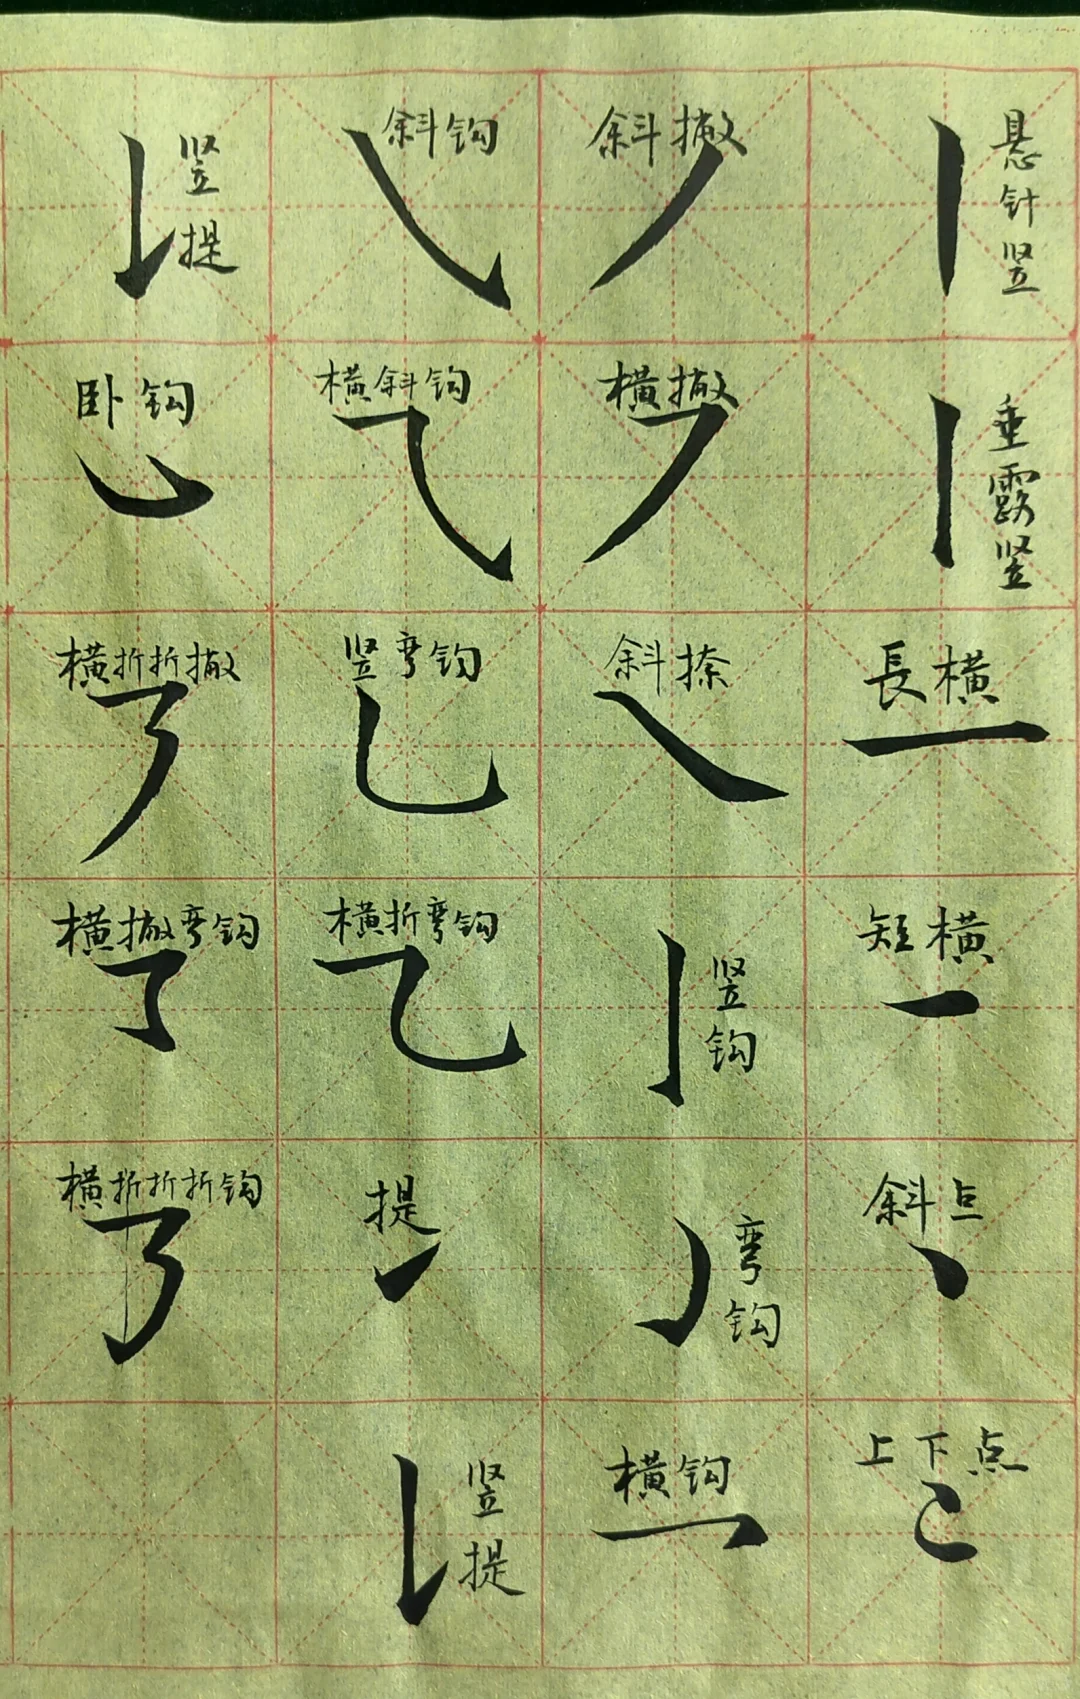 悬针竖
垂露竖
長横
短横
斜点
上下点
斜撇
横撇
斜捺
竖钩
弯钩
横钩
斜钩
横斜钩
竖弯钩
横折弯钩
提
竖提
竖提
卧钩
横折折撇
横撇弯钩
横折折折钩